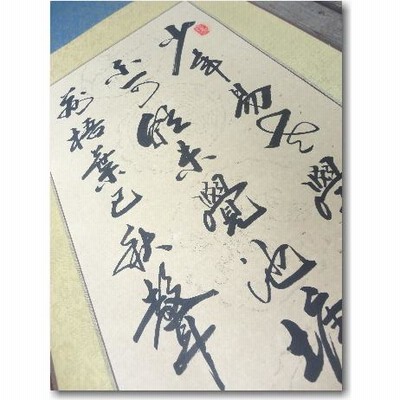 少年易老學
不可輕未覺池塘
前梧葉已秋聲